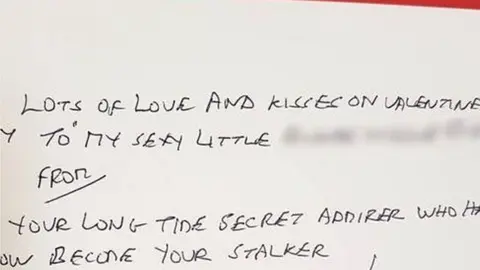 LOTS OF LOVE AND KISSES ON VALENTINE
Y TO MY SEXY LITTLE
FROM
YOUR LONG TIDE SECRET ADDIRER WHO HA
OW BECODE YOUR STALKER